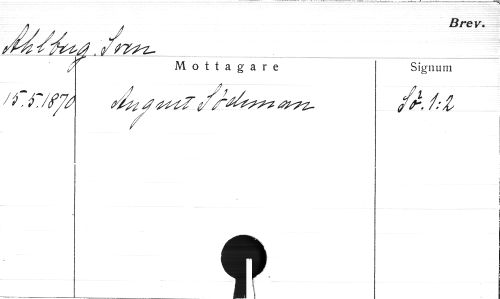 Brev.
Ahlberg, Sven
Mottagare Signum
15.5.1870 August Söderman Sö. 1:2